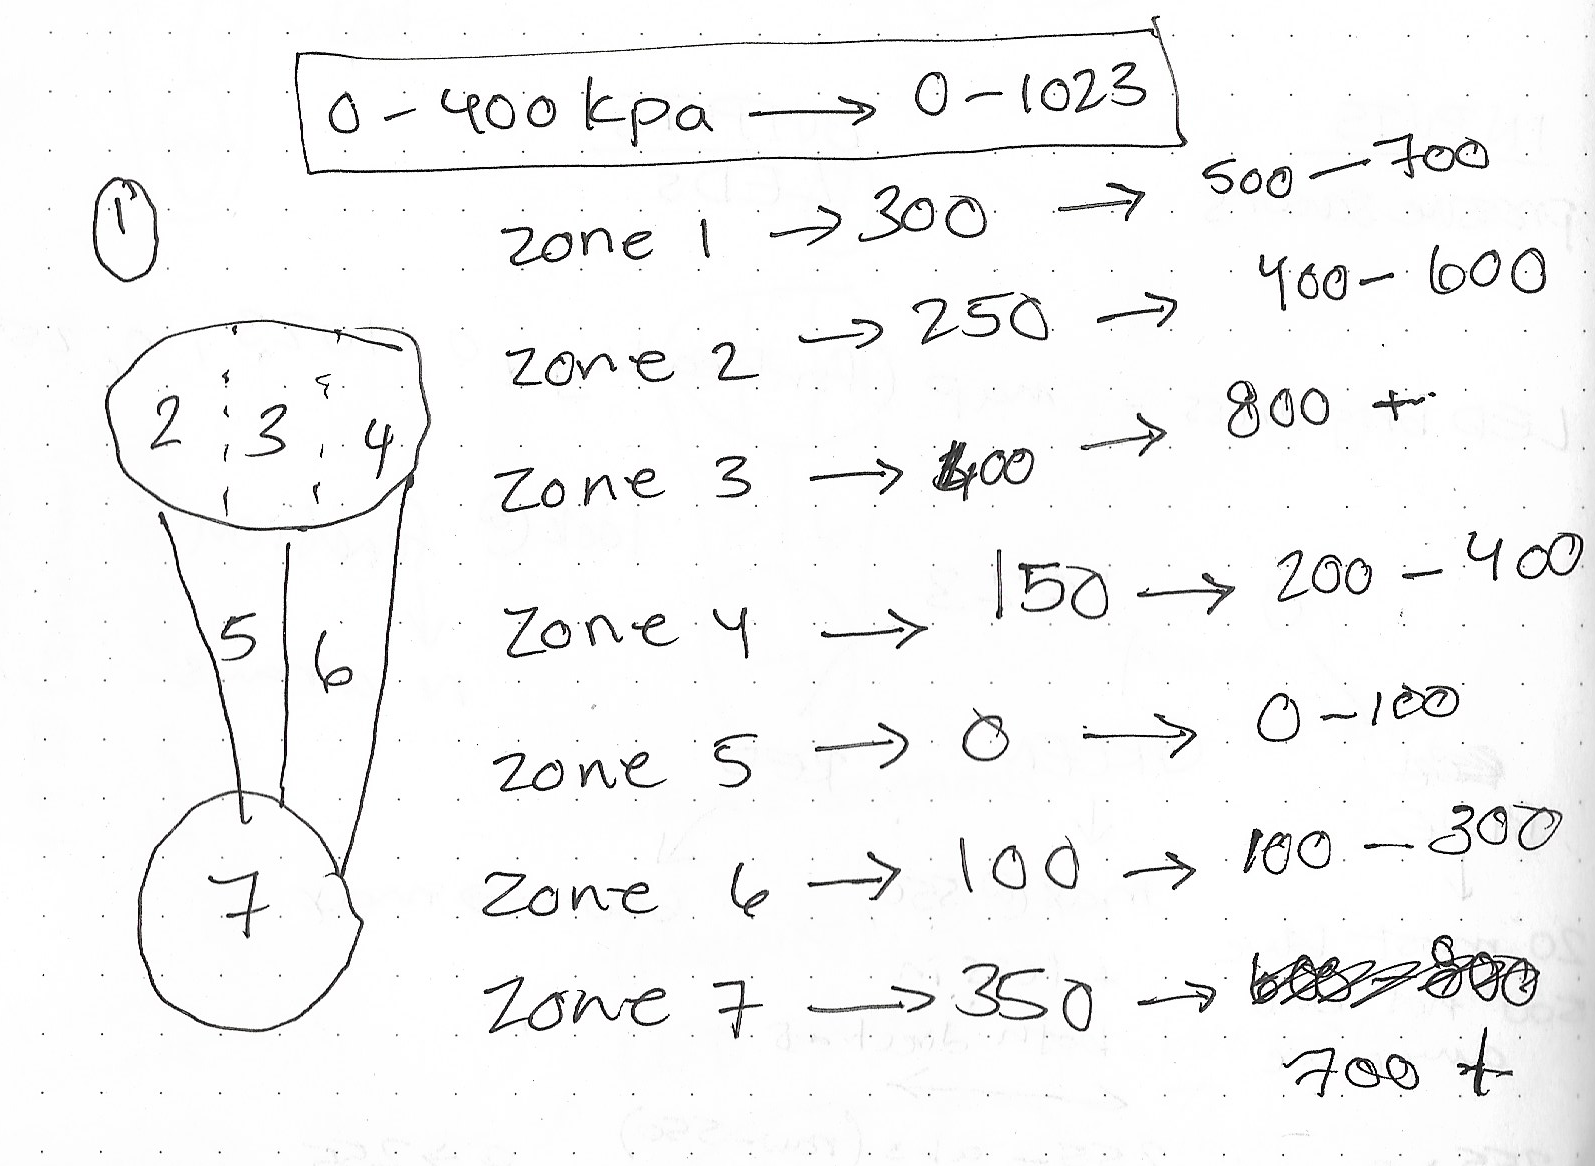 0 - 400 kpa → 0 - 1023
1
zone 1 → 300 → 500 - 700
zone 2 → 250 → 400 - 600
2 3 4
zone 3 → 400 → 800 +
zone 4 → 150 → 200 - 400
5 6
zone 5 → 0 → 0 - 100
zone 6 → 100 → 100 - 300
7
zone 7 → 350 → 600 - 800
700 +